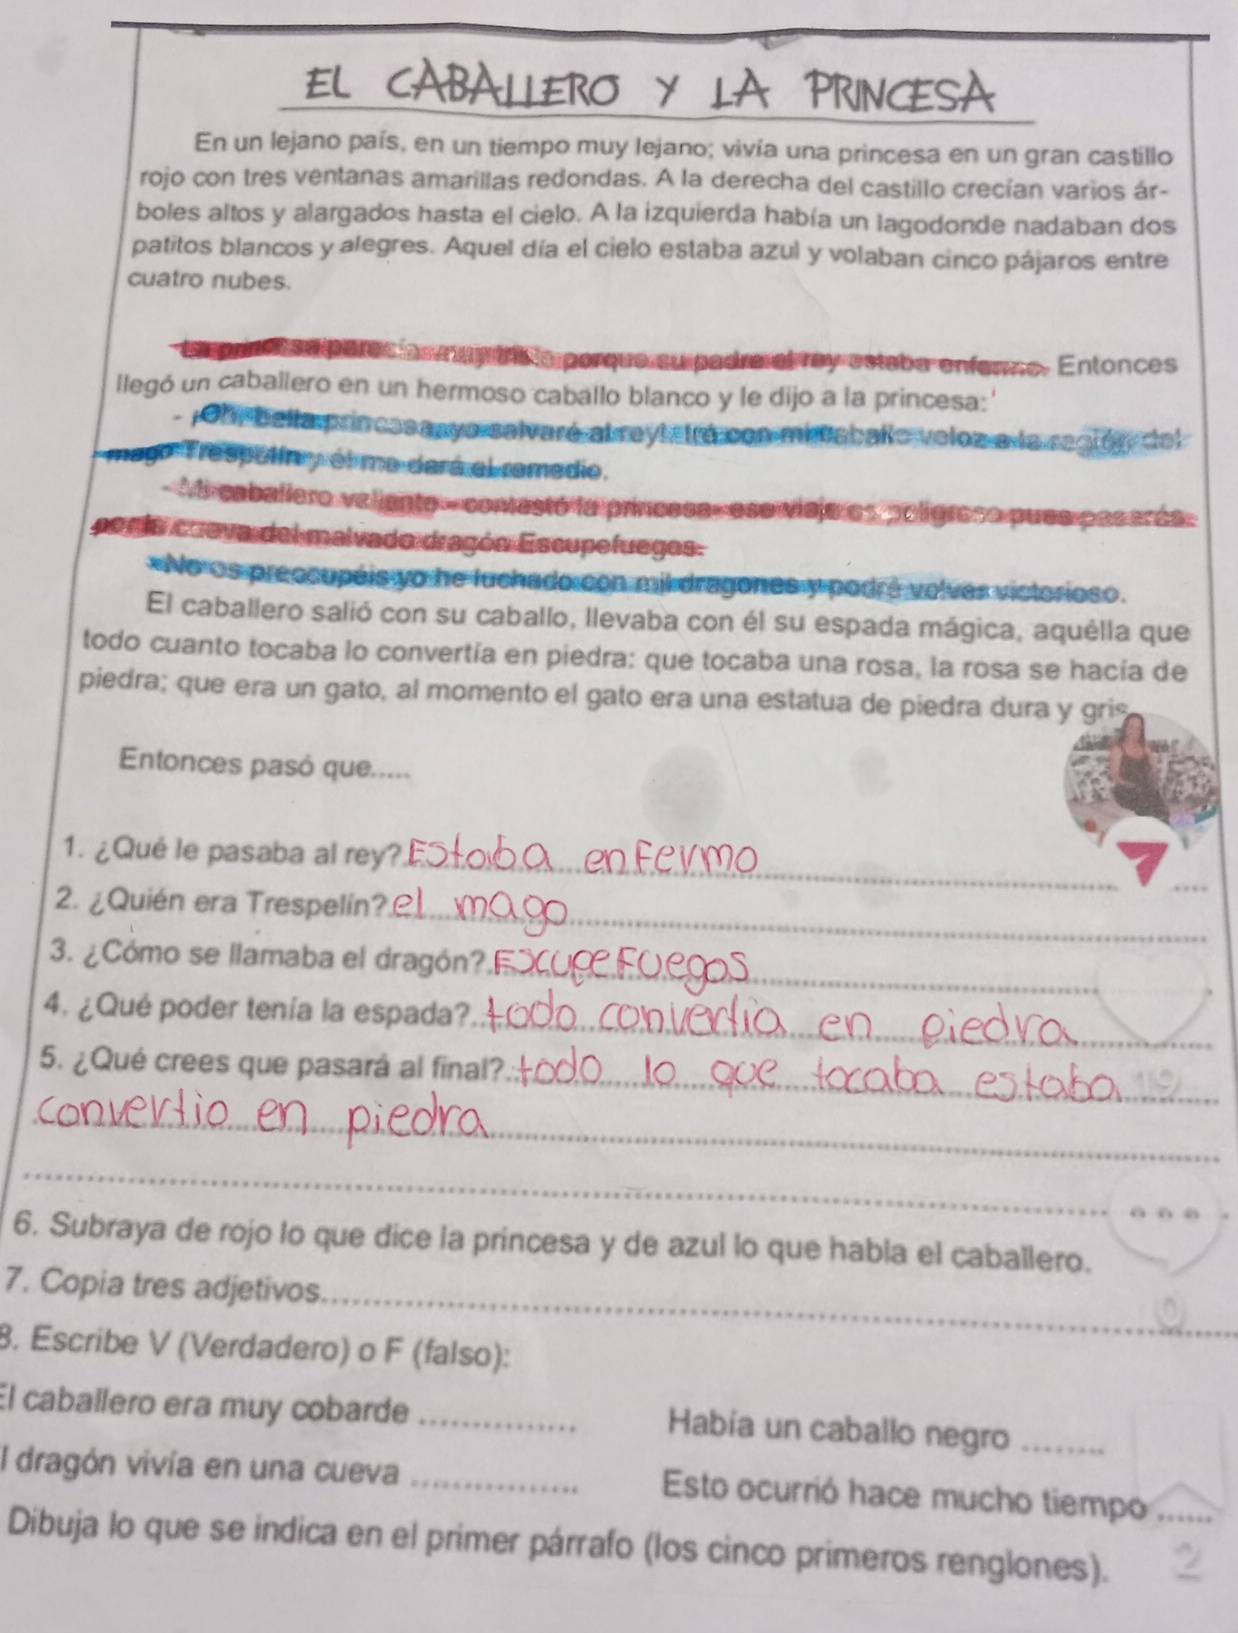 EL CABALLERO Y LA PRINCESA
En un lejano país, en un tiempo muy lejano; vivía una princesa en un gran castillo
rojo con tres ventanas amarillas redondas. A la derecha del castillo crecían varios ár-
boles altos y alargados hasta el cielo. A la izquierda había un lagodonde nadaban dos
patitos blancos y alegres. Aquel día el cielo estaba azul y volaban cinco pájaros entre
cuatro nubes.
La princesa parecía muy triste porque su padre el rey estaba enfermo. Entonces
llegó un caballero en un hermoso caballo blanco y le dijo a la princesa:
- ¡Oh, bella princesa, yo salvaré al rey!. Iré con mi caballo veloz a la región del
mago Trespelín y él me dará el remedio.
- Mi caballero valiente - contestó la princesa- ese viaje es peligroso pues pasarás
por la cueva del malvado dragón Escupefuegos.
- No os preocupéis yo he luchado con mil dragones y podré volver victorioso.
El caballero salió con su caballo, llevaba con él su espada mágica, aquélla que
todo cuanto tocaba lo convertía en piedra: que tocaba una rosa, la rosa se hacía de
piedra; que era un gato, al momento el gato era una estatua de piedra dura y gris
Entonces pasó que.....
1. ¿Qué le pasaba al rey? Estaba enfermo
2. ¿Quién era Trespelín? el mago
3. ¿Cómo se llamaba el dragón? EscupeFuegos
4. ¿Qué poder tenía la espada? todo convertia en piedra
5. ¿Qué crees que pasará al final? todo lo que tocaba estaba
convertio en piedra
6. Subraya de rojo lo que dice la princesa y de azul lo que habla el caballero.
7. Copia tres adjetivos
8. Escribe V (Verdadero) o F (falso):
El caballero era muy cobarde Había un caballo negro
l dragón vivía en una cueva Esto ocurrió hace mucho tiempo
Dibuja lo que se indica en el primer párrafo (los cinco primeros renglones).